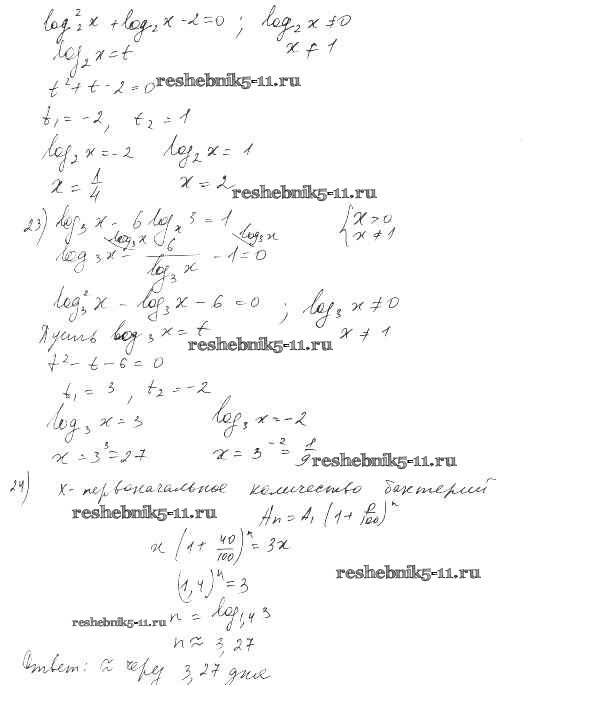 log₂²x + log₂x - 2 = 0 ; log₂x ≠ 0
log₂x = t x ≠ 1
t² + t - 2 = 0 reshebnik5-11.ru
t₁ = -2, t₂ = 1
log₂x = -2 log₂x = 1
x = 1/4 x = 2 reshebnik5-11.ru
23) log₃x - 6 logₓ3 = 1 { x > 0
x ≠ 1
log₃x log₃x
log₃x - 6/log₃x - 1 = 0
log₃²x - log₃x - 6 = 0 ; log₃x ≠ 0
Пусть log₃x = t x ≠ 1
reshebnik5-11.ru
t² - t - 6 = 0
t₁ = 3, t₂ = -2
log₃x = 3 log₃x = -2
x = 3³ = 27 x = 3⁻² = 1/9 reshebnik5-11.ru
24) x - первоначальное количество бактерий
reshebnik5-11.ru Aₙ = A₁(1 + p/100)ⁿ
x(1 + 40/100)ⁿ = 3x
reshebnik5-11.ru
(1,4)ⁿ = 3
reshebnik5-11.ru n = log₁,₄3
n ≈ 3,27
Ответ: ≈ через 3,27 дня